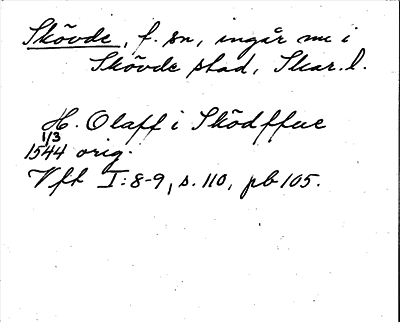 Skövde, f. sn, ingår nu i
Skövde stad, Skar. l.
H. Olaff i Sködffue
1/3
1544 orig.
Vft I:8-9, s. 110, pb 105.